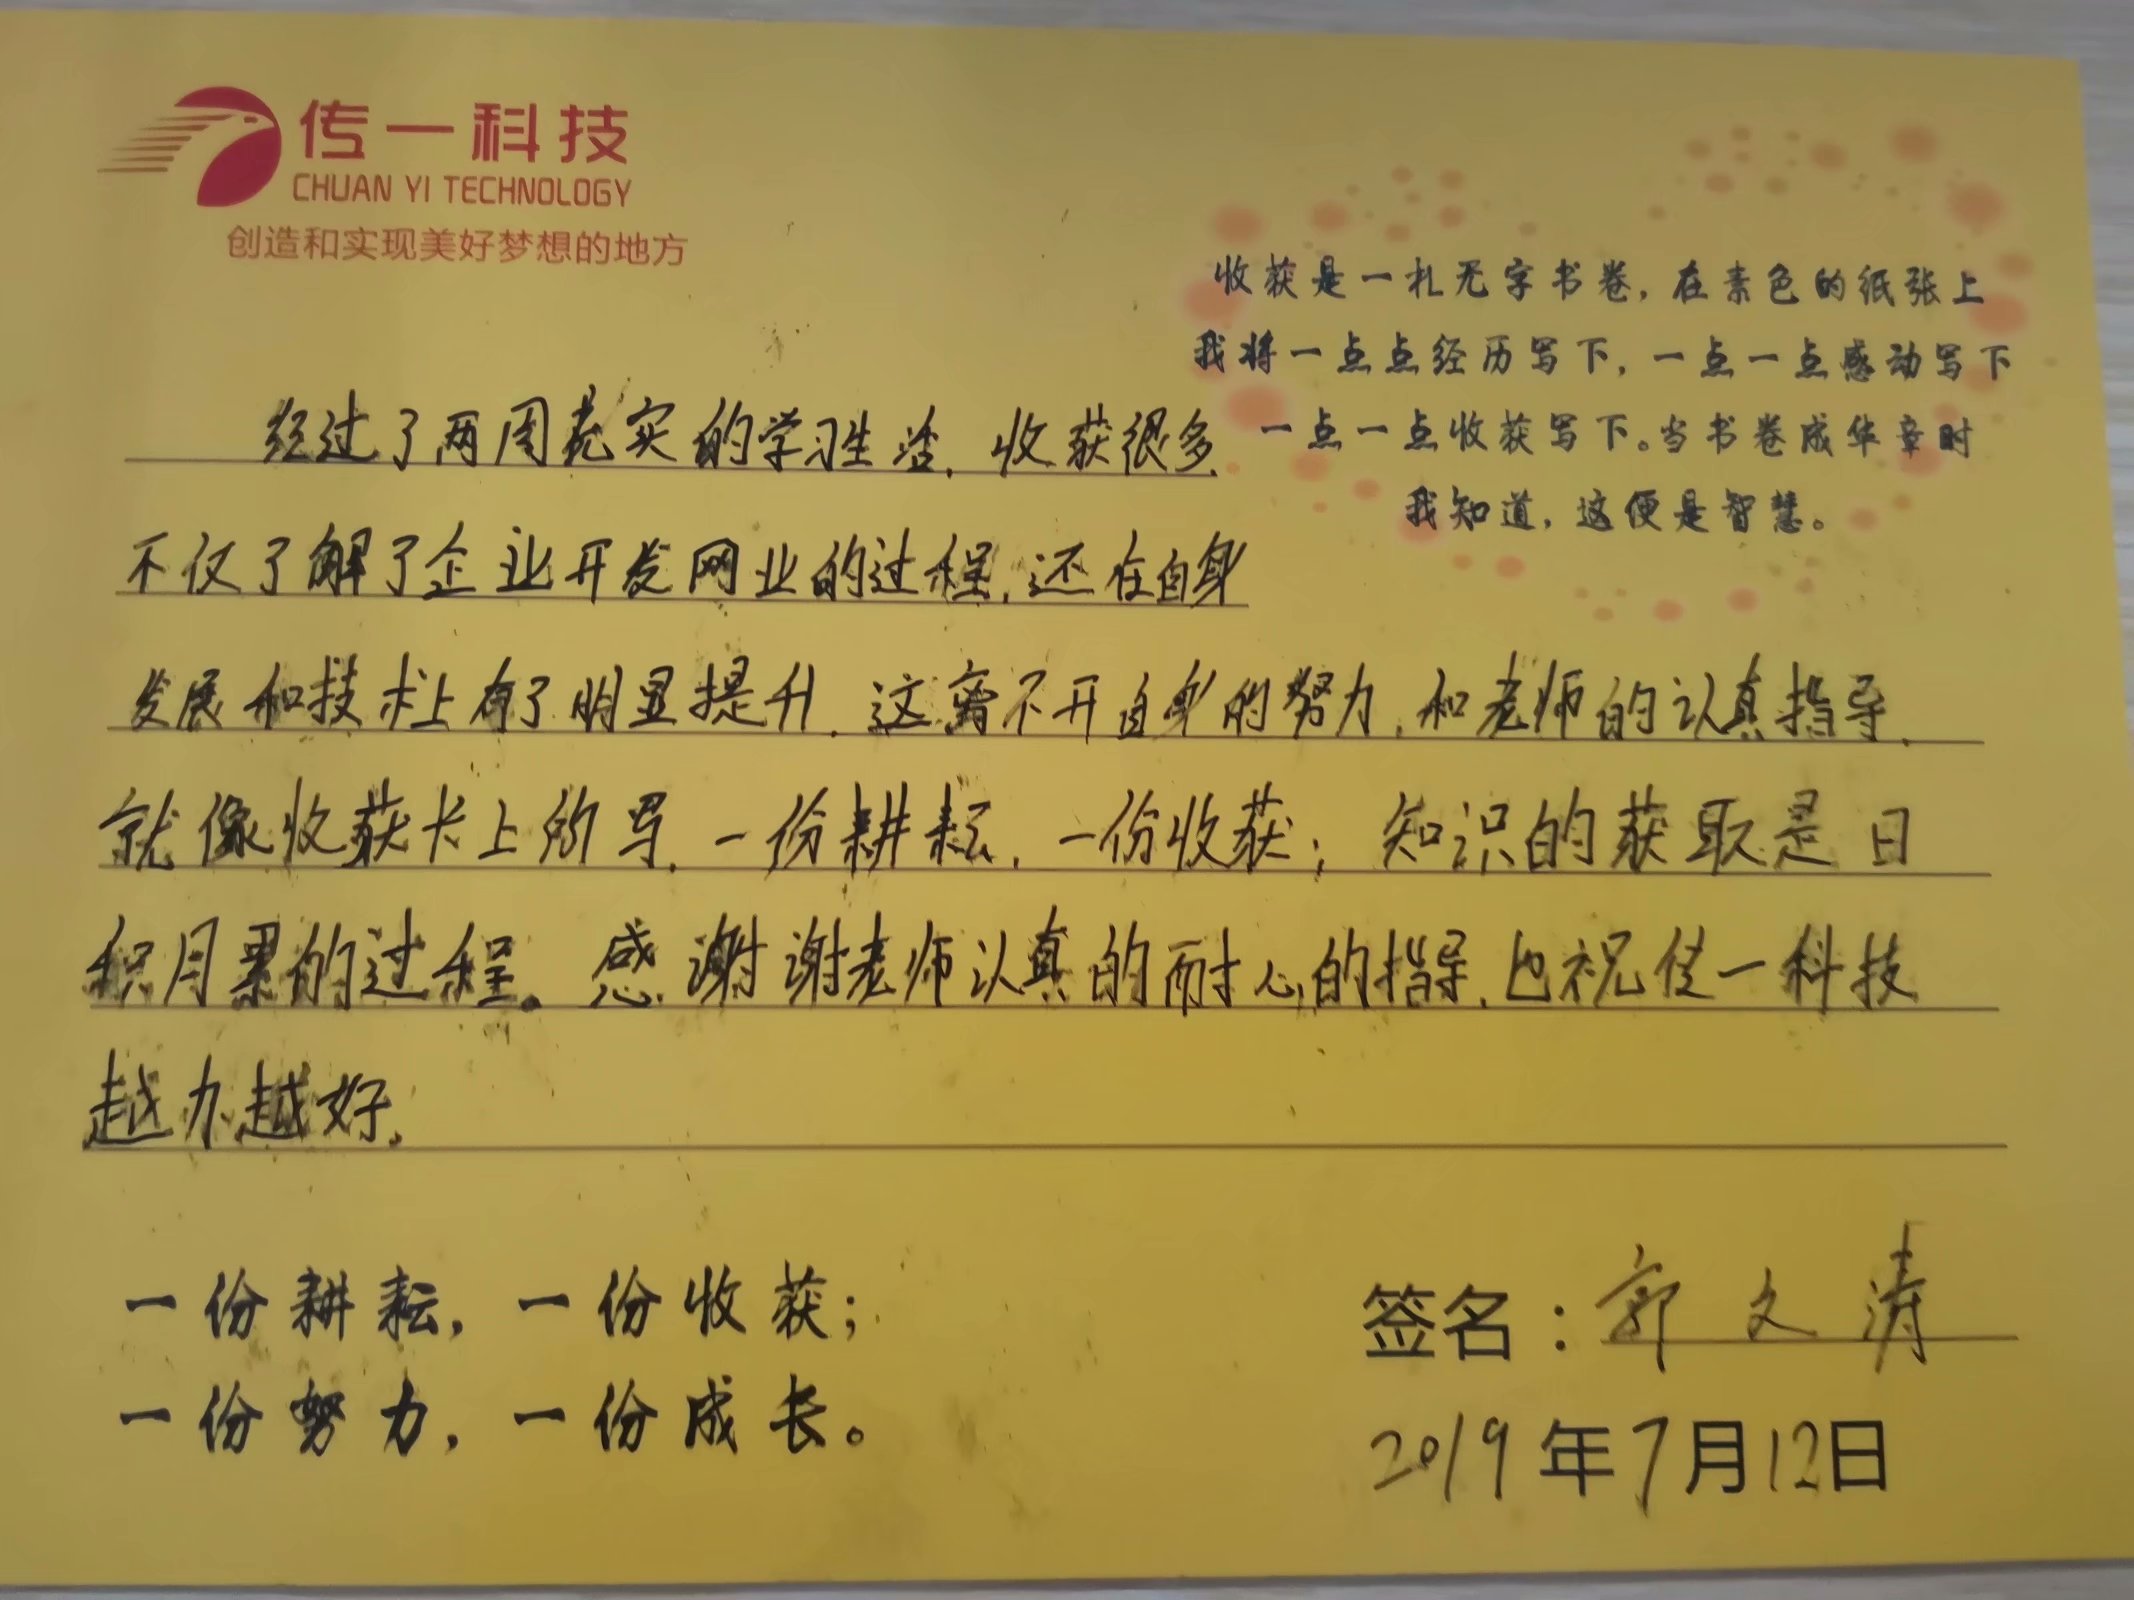 传一科技
CHUAN YI TECHNOLOGY
创造和实现美好梦想的地方
收获是一札无字书卷，在素色的纸张上
我将一点点经历写下，一点一点感动写下
一点一点收获写下。当书卷成华章时
我知道，这便是智慧。
经过了两周充实的学习生活，收获很多，
不仅了解了企业开发网业的过程，还在自身
发展和技术上有了明显提升，这离不开自身的努力，和老师的认真指导，
就像收获卡上所写，一份耕耘，一份收获；知识的获取是日
积月累的过程。感谢谢老师认真的耐心的指导，也祝传一科技
越办越好。
一份耕耘，一份收获；
一份努力，一份成长。
签名：郭文涛
2019年7月12日